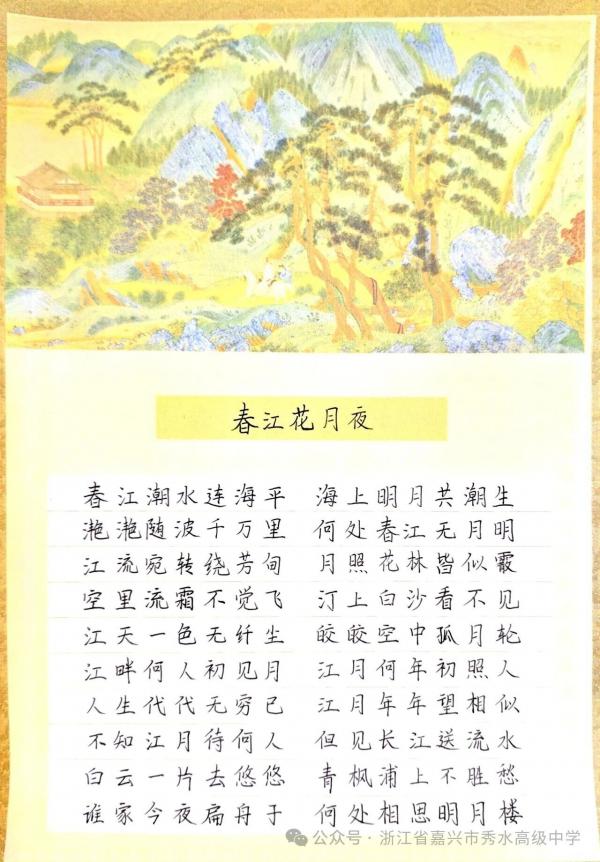 春江花月夜
春江潮水连海平 海上明月共潮生
滟滟随波千万里 何处春江无月明
江流宛转绕芳甸 月照花林皆似霰
空里流霜不觉飞 汀上白沙看不见
江天一色无纤尘 皎皎空中孤月轮
江畔何人初见月 江月何年初照人
人生代代无穷已 江月年年望相似
不知江月待何人 但见长江送流水
白云一片去悠悠 青枫浦上不胜愁
谁家今夜扁舟子 何处相思明月楼
公众号·浙江省嘉兴市秀水高级中学